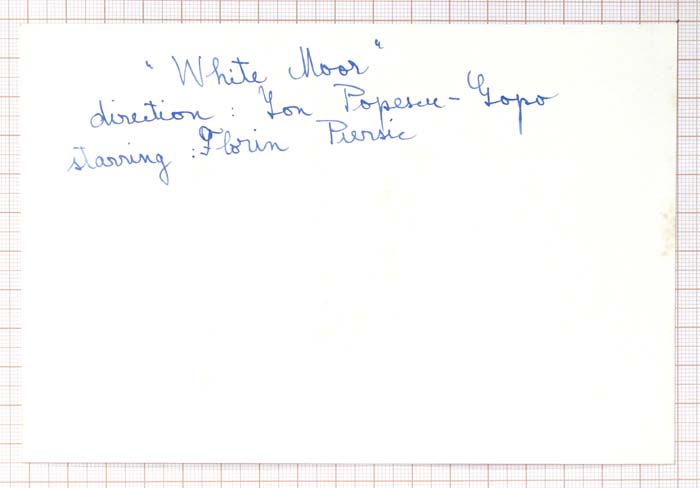 "White Moor"
direction : Ion Popescu-Gopo
starring : Florin Piersic